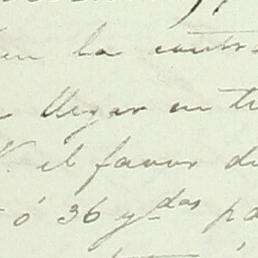 en la contr
llegar en t
V. el favor d
ó 36 y.das p